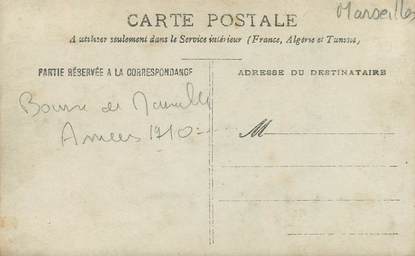 Marseille
CARTE POSTALE
A utiliser seulement dans le Service intérieur (France, Algérie et Tunisie)
PARTIE RÉSERVÉE A LA CORRESPONDANCE
ADRESSE DU DESTINATAIRE
Bourse de Marseille
Années 1910
M